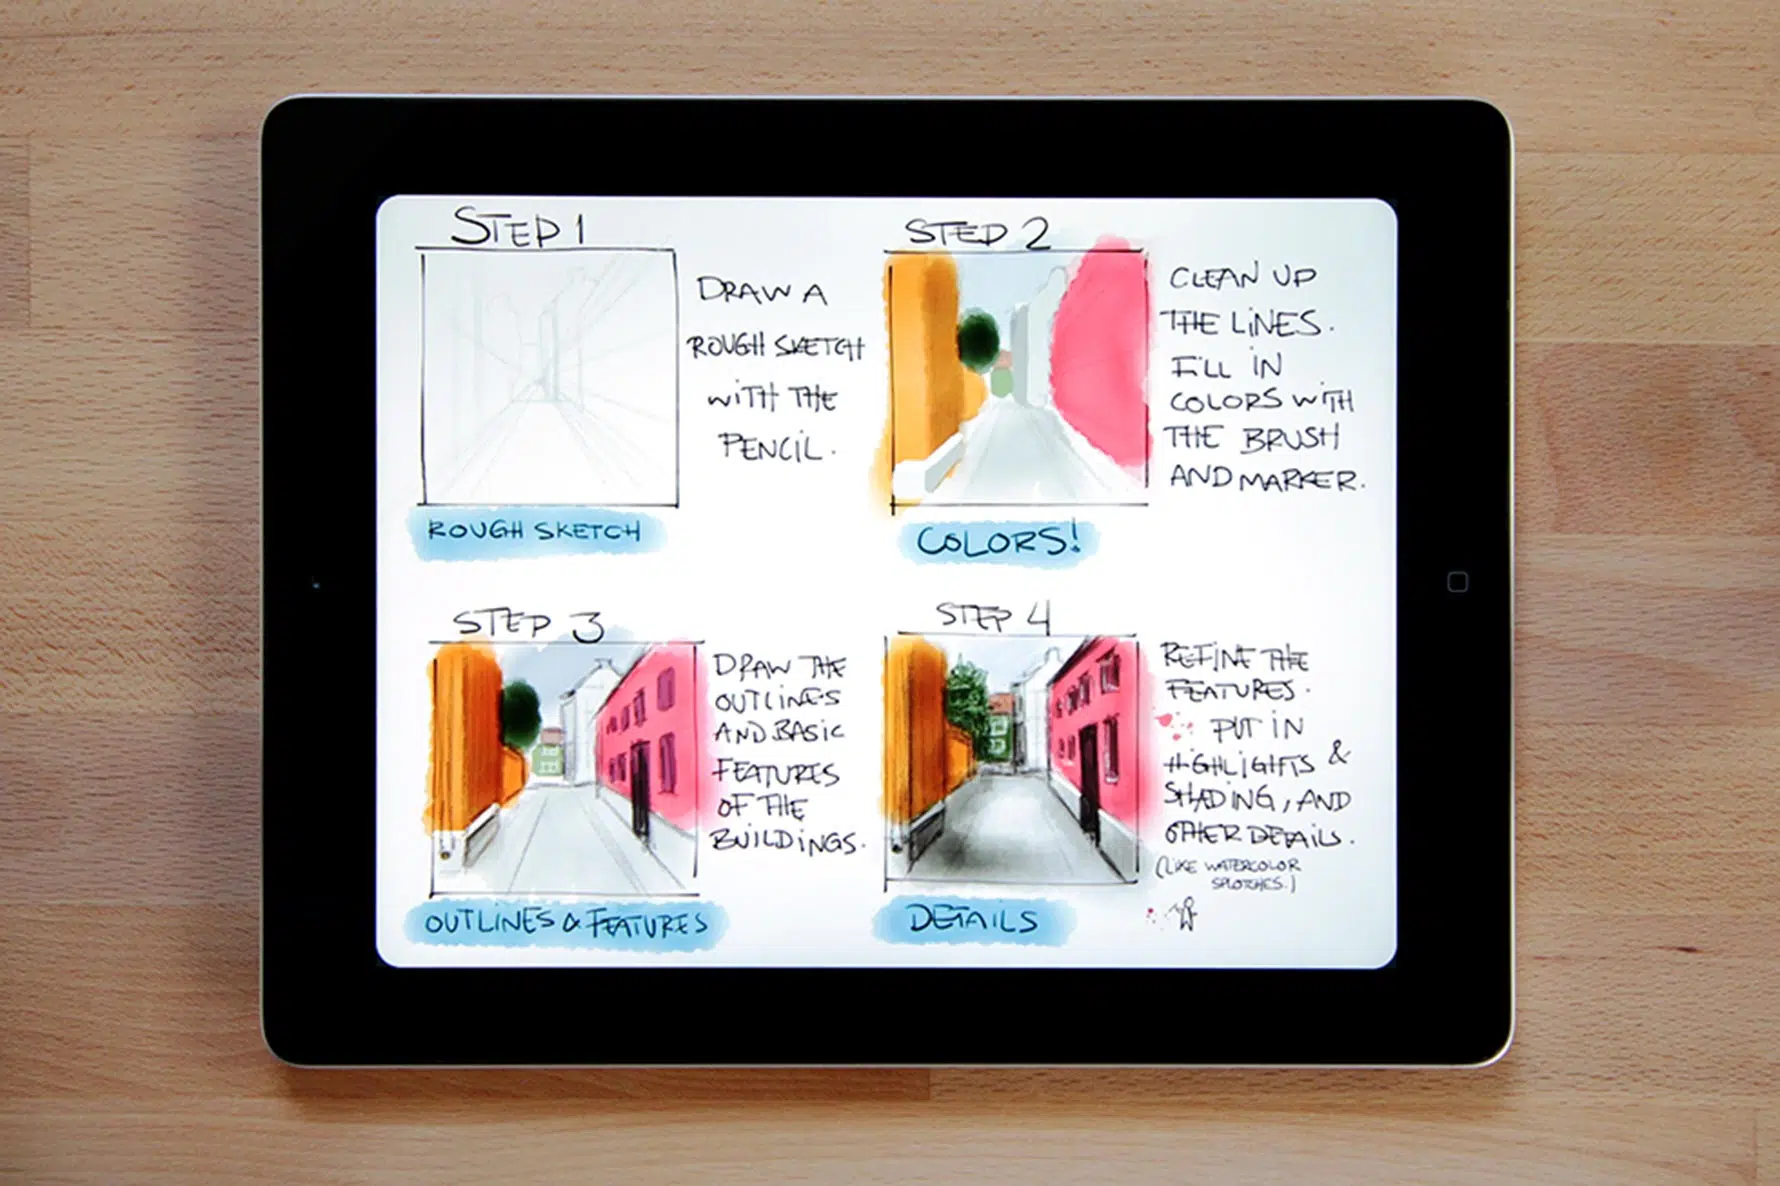 STEP 1
DRAW A
ROUGH SKETCH
WITH THE
PENCIL.
ROUGH SKETCH
STEP 2
CLEAN UP
THE LINES.
FILL IN
COLORS WITH
THE BRUSH
AND MARKER.
COLORS!
STEP 3
DRAW THE
OUTLINES
AND BASIC
FEATURES
OF THE
BUILDINGS.
OUTLINES & FEATURES
STEP 4
REFINE THE
FEATURES.
PUT IN
HIGHLIGHTS &
SHADING, AND
OTHER DETAILS.
(LIKE WATERCOLOR
SPLOTCHES.)
DETAILS